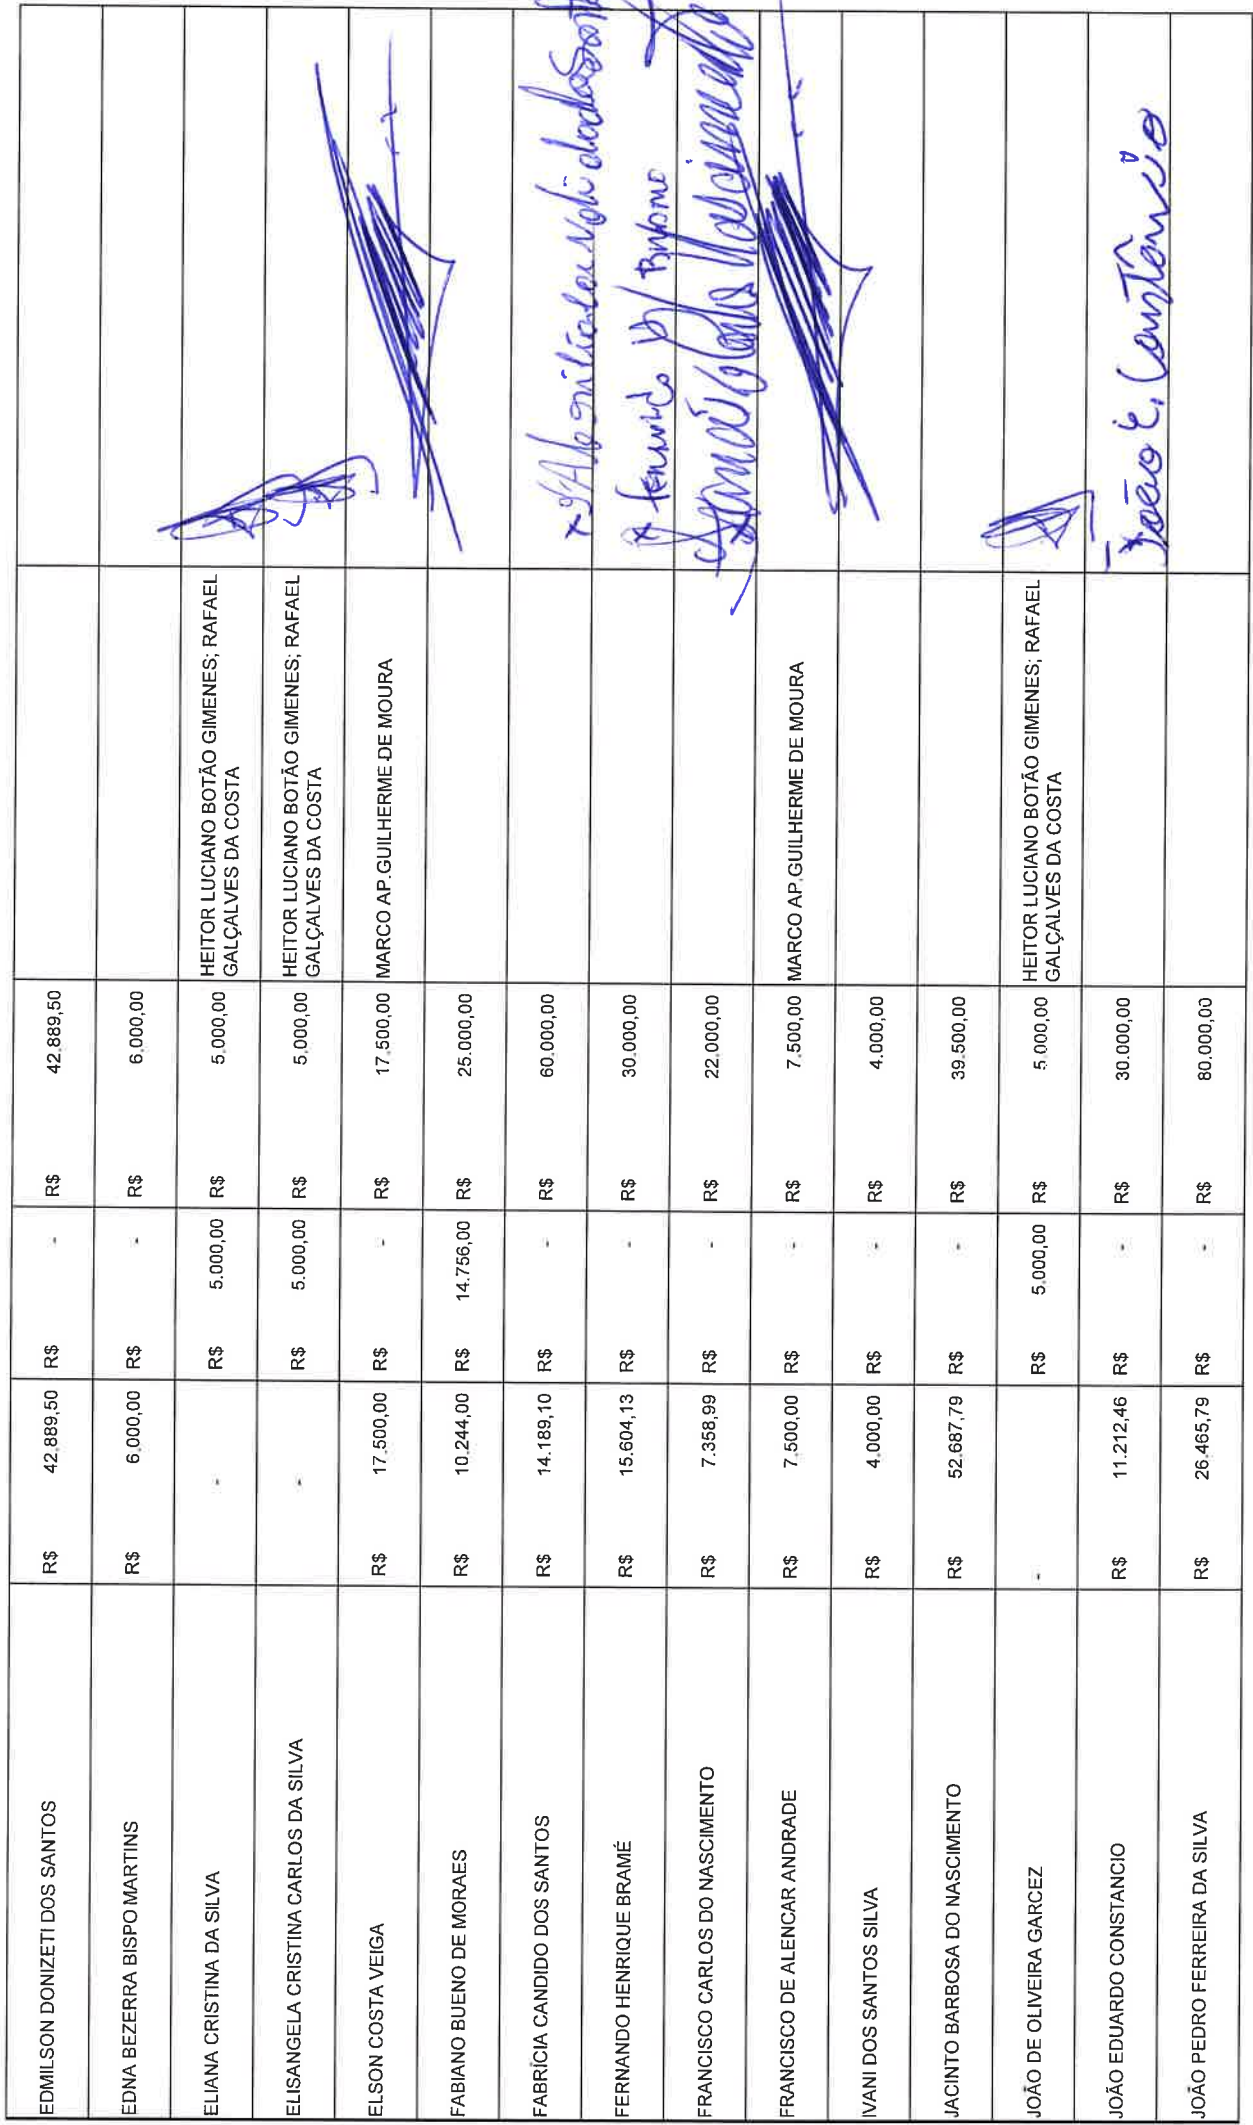 EDMILSON DONIZETI DOS SANTOS R$ 42.889,50 R$ - R$ 42.889,50
EDNA BEZERRA BISPO MARTINS R$ 6.000,00 R$ - R$ 6.000,00
ELIANA CRISTINA DA SILVA - R$ 5.000,00 R$ 5.000,00 HEITOR LUCIANO BOTÃO GIMENES; RAFAEL
GALÇALVES DA COSTA
ELISANGELA CRISTINA CARLOS DA SILVA - R$ 5.000,00 R$ 5.000,00 HEITOR LUCIANO BOTÃO GIMENES; RAFAEL
GALÇALVES DA COSTA
ELSON COSTA VEIGA R$ 17.500,00 R$ - R$ 17.500,00 MARCO AP.GUILHERME DE MOURA
FABIANO BUENO DE MORAES R$ 10.244,00 R$ 14.756,00 R$ 25.000,00
FABRÍCIA CANDIDO DOS SANTOS R$ 14.189,10 R$ - R$ 60.000,00
FERNANDO HENRIQUE BRAMÉ R$ 15.604,13 R$ - R$ 30.000,00
FRANCISCO CARLOS DO NASCIMENTO R$ 7.358,99 R$ - R$ 22.000,00 Nascimento
FRANCISCO DE ALENCAR ANDRADE R$ 7.500,00 R$ - R$ 7.500,00 MARCO AP.GUILHERME DE MOURA
IVANI DOS SANTOS SILVA R$ 4.000,00 R$ - R$ 4.000,00
JACINTO BARBOSA DO NASCIMENTO R$ 52.687,79 R$ - R$ 39.500,00
JOÃO DE OLIVEIRA GARCEZ - R$ 5.000,00 R$ 5.000,00 HEITOR LUCIANO BOTÃO GIMENES; RAFAEL
GALÇALVES DA COSTA
JOÃO EDUARDO CONSTANCIO R$ 11.212,46 R$ - R$ 30.000,00 João E. Constâncio
JOÃO PEDRO FERREIRA DA SILVA R$ 26.465,79 R$ - R$ 80.000,00